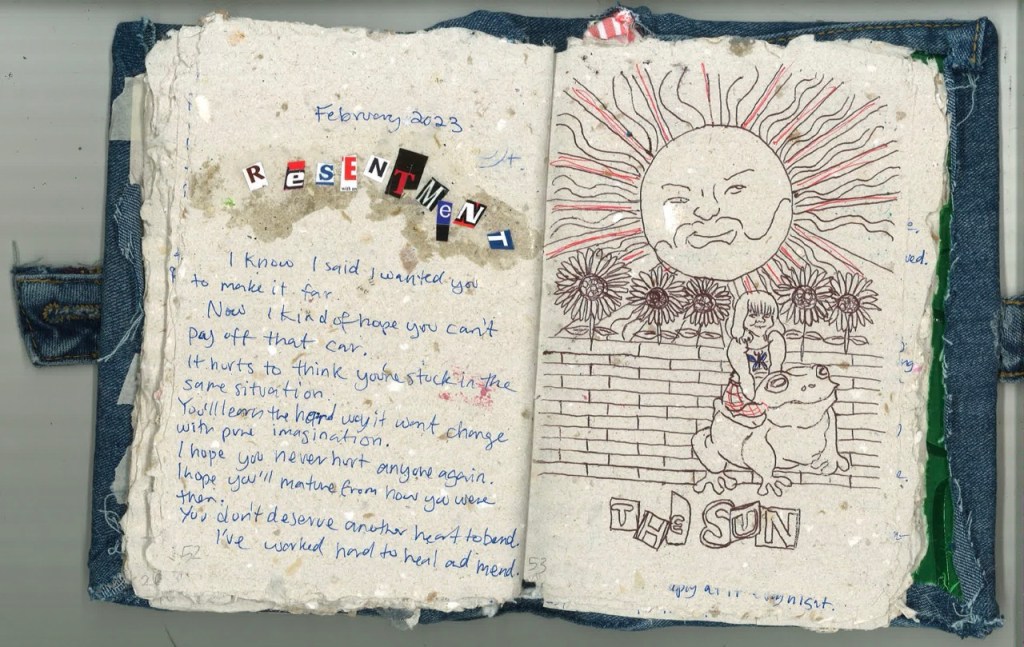 February 2023
ReSENTMeNT
I know I said I wanted you
to make it far.
Now I kind of hope you can't
pay off that car.
It hurts to think you're stuck in the
same situation.
You'll learn the hard way it won't change
with pure imagination.
I hope you never hurt anyone again.
I hope you'll mature from how you were
then.
You don't deserve another heart to bend.
I've worked hard to heal and mend.
52
53
THE SUN